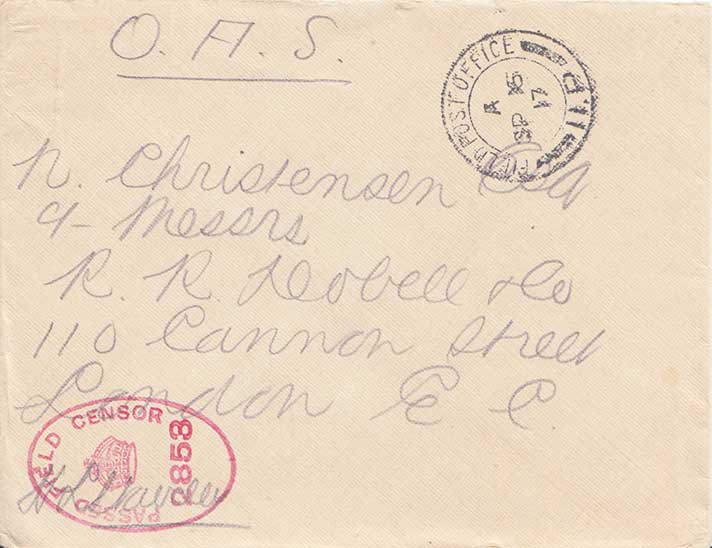 O.A.S.
FIELD POST OFFICE
A
SP 15
17
N. Christensen Esq
Messrs
R. R. Dobell & Co
110 Cannon Street
London E C
PASSED FIELD CENSOR
2853